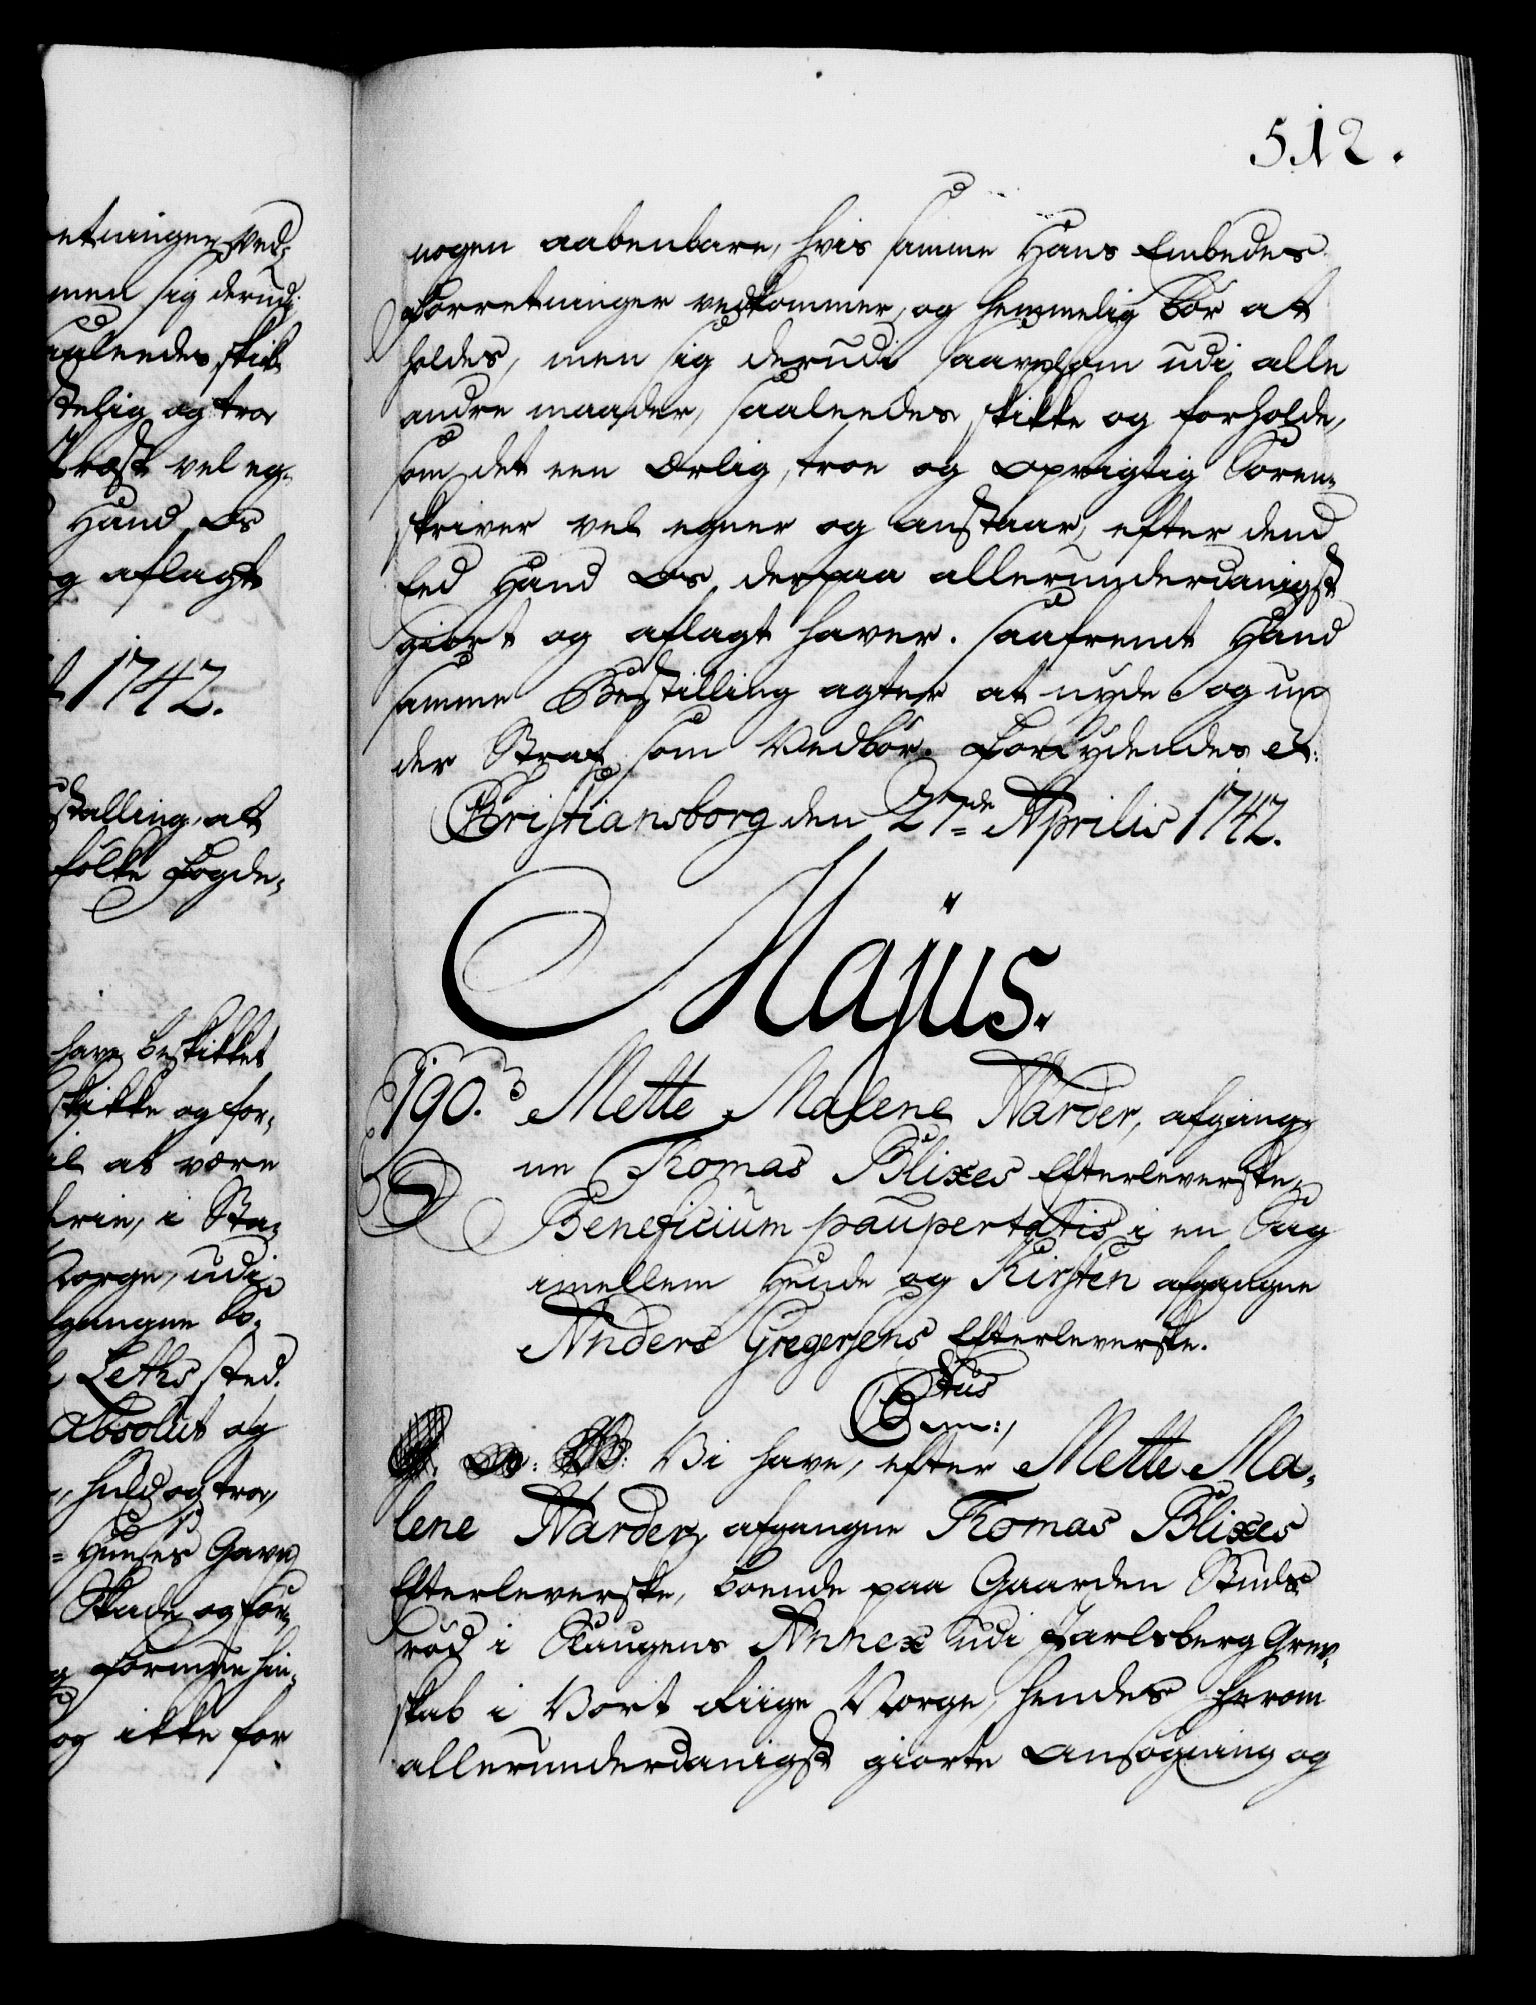 512.
nogen aabenbare, hvis samme Hans Embedes
Forretninger vedkommer, og hemmelig bør at
holdes, men sig derudi saavelsom udi alle
andre maader, saaleedes skikke og forholde,
som det een Ærlig, troe og oprigtig Soren-
skriver vel egner og anstaar, efter dend
Eed Hand Os derpaa allerunderdanigst
giort og aflagt haver. saafremt Hand
samme Bestilling agter at nyde og un-
der Straf som Vedbør. Forbydendes etc:
Christiansborg den 27de Aprilis 1742.
Majus.
190. Mette Malene Narder, afgang-
ne Thomas Blixes Efterleverske,
Beneficium paupertatis i en Sag
imellem Hende og Kirsten afgangne
Anders Gregersens Efterleverske.
C 5tus
Vi have, efter Mette Ma-
lene Narder, afgangne Thomas Blixes
Efterleverske, boende paa Gaarden
rød i Annex udi Jarlsberg Grev-
skab i Vort Riige Norge, hendes herom
allerunderdanigst giorte Ansøgning og
etningen ved-
men sig derudi
aaleedes skik-
telig og troe
vel eg-
Hand Os
g aflagt
1742.
stalling, at
folke Fogde-
have beskikket
skikke og for-
il at være
krin, i Sta-
Norge, udi
fgangne So-
Leths sted.
Absolut og
, huld og troe,
Huuses Gavn
Skade og For-
g formeene hin-
og ikke for